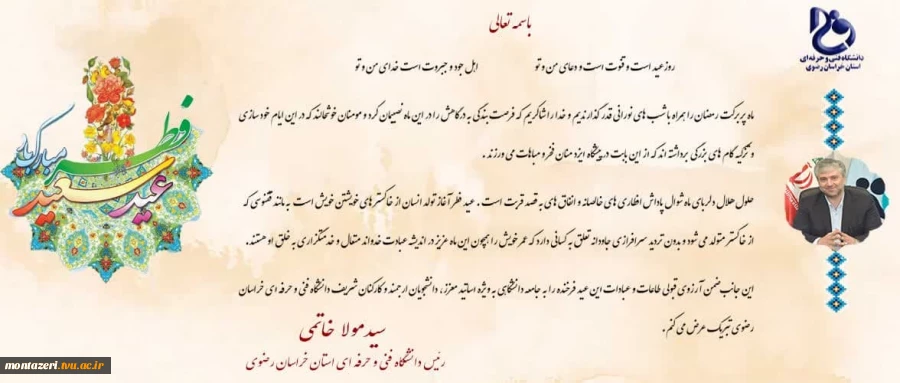 باسمه تعالی
دانشگاه فنی و حرفه‌ای
استان خراسان رضوی
روز عید است و قنوت است و دعای من و تو اهل جود و جبروت است خدای من و تو
ماه پربرکت رمضان را همراه با شب های نورانی قدر گذراندیم و خدا را شاکریم که فرصت بندگی به درگاهش را در این ماه نصیبمان کرد و مومنان خوشحالند که در این ایام خودسازی
و تزکیه گام های بزرگی برداشته اند که از این بابت در پیشگاه ایزد منان فخر و مباهات می ورزند.
حلول هلال دلربای ماه شوال پاداش افطاری های خالصانه و انفاق های به قصد قربت است. عید فطر آغاز تولد انسان از خاکسترهای خویشتن خویش است به مانند ققنوسی که
از خاکستر متولد می شود و بدون تردید سرافرازی جاودانه تعلق به کسانی دارد که عمر خویش را همچون این ماه عزیز در اندیشه عبادت خداوند متعال و خدمتگزاری به خلق او هستند.
این جانب ضمن آرزوی قبولی طاعات و عبادات این عید فرخنده را به جامعه دانشگاهی به ویژه اساتید معزز، دانشجویان ارجمند و کارکنان شریف دانشگاه فنی و حرفه ای خراسان
رضوی تبریک عرض می کنم.
سید مولا خاتمی
رئیس دانشگاه فنی و حرفه ای استان خراسان رضوی
عید سعید فطر مبارک باد
montazeri.tvu.ac.ir